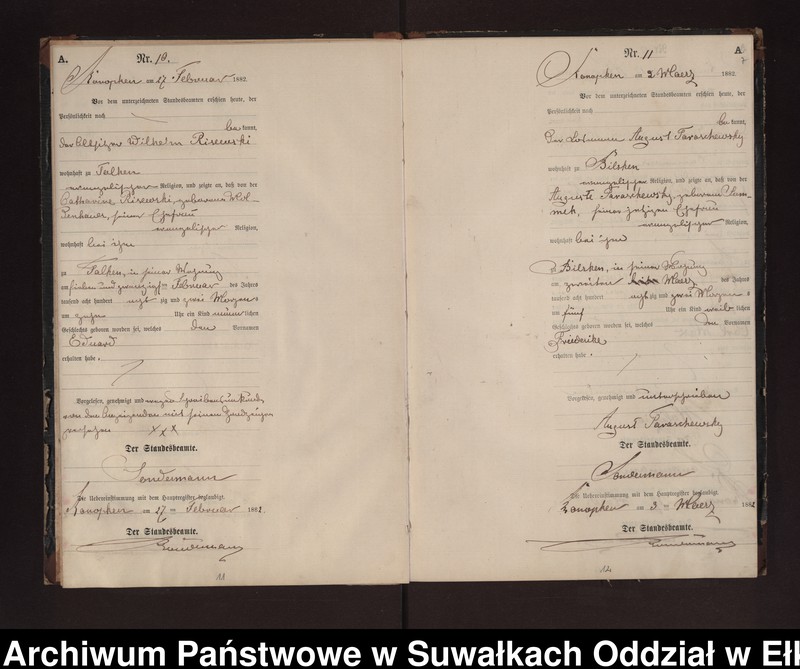 A.
Nr. 10.
Konopken am 27. Februar 1882.
Vor dem unterzeichneten Standesbeamten erschien heute, der
Persönlichkeit nach
bekannt,
der Wilhelm Risewski
wohnhaft zu Talken
evangelischer Religion, und zeigte an, daß von der
Catharine Risewski, geborene
seiner Ehefrau
evangelischer Religion,
wohnhaft bei ihm
zu Talken, in seiner Wohnung
am sieben und zwanzigsten Februar des Jahres
tausend acht hundert achtzig und zwei Morgens
um zehn Uhr ein Kind männlichen
Geschlechts geboren worden sei, welches den Vornamen
Eduard
erhalten habe.
Vorgelesen, genehmigt und wegen Schreibensunkunde
von dem Anzeigenden mit seinem Handzeichen
versehen XXX
Der Standesbeamte.
Sondermann
Die Uebereinstimmung mit dem Hauptregister beglaubigt.
Konopken am 27 ten Februar 1882.
Der Standesbeamte.
Sondermann
11
A
Nr. 11
Konopken am 2 Maerz 1882.
Vor dem unterzeichneten Standesbeamten erschien heute, der
Persönlichkeit nach
bekannt,
Der August Taraschewsky
wohnhaft zu Bilsken
evangelischer Religion, und zeigte an, daß von der
Auguste Taraschewsky, geborene
seiner jetzigen Ehefrau
evangelischer Religion,
wohnhaft bei ihm
zu Bilsken, in seiner Wohnung
am zweiten Maerz des Jahres
tausend acht hundert achtzig und zwei Morgens
um fünf Uhr ein Kind weiblichen
Geschlechts geboren worden sei, welches den Vornamen
Friederike
erhalten habe.
Vorgelesen, genehmigt und unterschrieben
August Taraschewsky
Der Standesbeamte.
Sondermann
Die Uebereinstimmung mit dem Hauptregister beglaubigt.
Konopken am 3 ten Maerz 1882
Der Standesbeamte.
Sondermann
12
Archiwum Państwowe w Suwałkach Oddział w Ełk